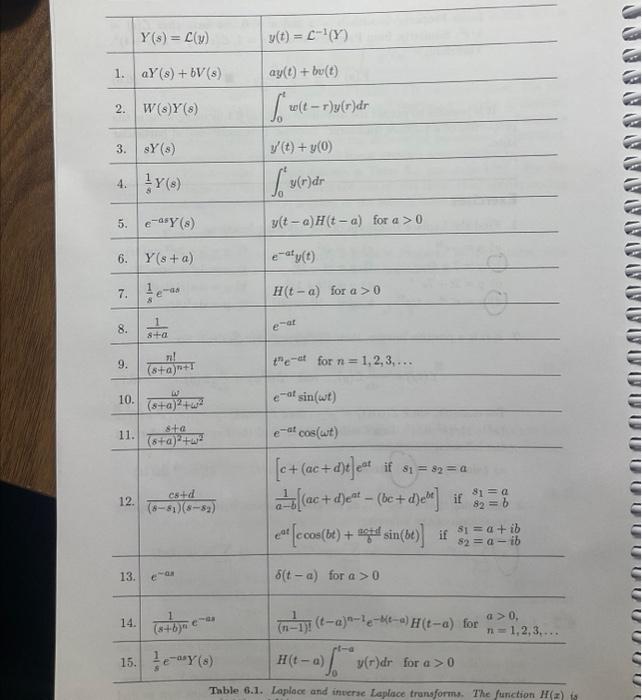 Y(s) = 𝓛(y) y(t) = 𝓛⁻¹(Y)
1. aY(s) + bV(s) ay(t) + bv(t)
2. W(s)Y(s) ∫₀ᵗ w(t − r)y(r)dr
3. sY(s) y′(t) + y(0)
4. 1/s Y(s) ∫₀ᵗ y(r)dr
5. e^{−as}Y(s) y(t − a)H(t − a) for a > 0
6. Y(s + a) e^{−at}y(t)
7. 1/s e^{−as} H(t − a) for a > 0
8. 1/(s+a) e^{−at}
9. n!/(s+a)^{n+1} tⁿe^{−at} for n = 1, 2, 3, ...
10. ω/((s+a)²+ω²) e^{−at} sin(ωt)
11. (s+a)/((s+a)²+ω²) e^{−at} cos(ωt)
12. (cs+d)/((s−s₁)(s−s₂)) [c + (ac + d)t]e^{at} if s₁ = s₂ = a
1/(a−b) [(ac + d)e^{at} − (bc + d)e^{bt}] if s₁ = a s₂ = b
e^{at} [c cos(bt) + (ac+d)/b sin(bt)] if s₁ = a + ib s₂ = a − ib
13. e^{−as} δ(t − a) for a > 0
14. 1/(s+b)ⁿ e^{−as} 1/(n−1)! (t−a)^{n−1}e^{−b(t−a)}H(t−a) for a > 0, n = 1, 2, 3, ...
15. 1/s e^{−as}Y(s) H(t − a) ∫₀^{t−a} y(r)dr for a > 0
Table 6.1. Laplace and inverse Laplace transforms. The function H(x) is